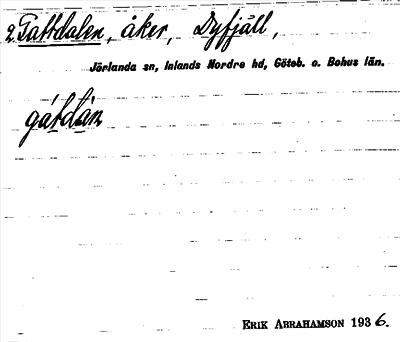 2. Gattdalen, åker, Dyfjäll,
Jörlanda sn, Inlands Nordre hd, Göteb. o. Bohus län.
gátdàn
ERIK ABRAHAMSON 1936.